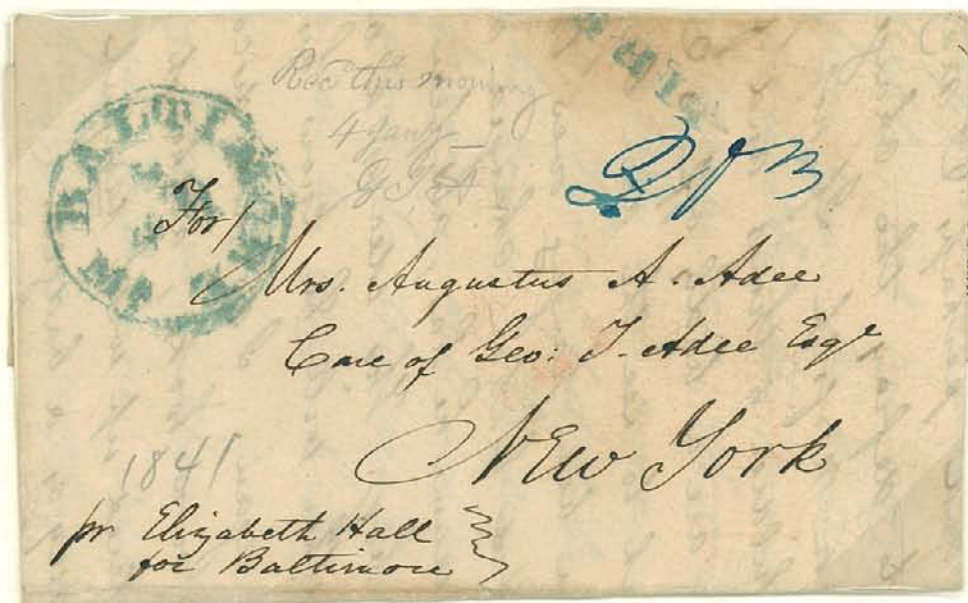 BALTIMORE
Md.
SHIP
Recd this morning
4 Jany
G T A
For/
Mrs. Augustus A. Adee
Care of Geo: T. Adee Esqr
New York
1841
pr Elizabeth Hall
for Baltimore